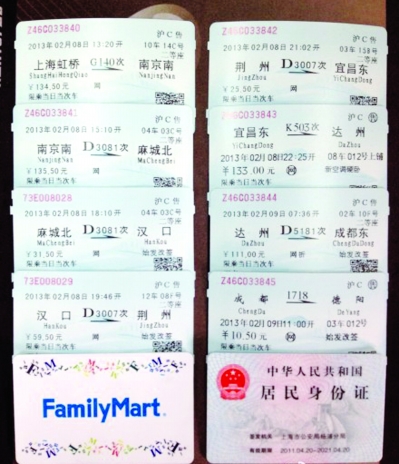 Z46C033840 沪C售
2013年02月08日13:20开 10车14C号
二等座
上海虹桥 G140次 南京南
ShangHaiHongQiao NanJingNan
￥134.50元 网
限乘当日当次车
沪C售
2013年02月08日15:10开 04车03C号
南京南 D3081次 麻城北
NanJingNan MaChengBei
￥135.50元 网
限乘当日当次车
73E008028 沪C售
2013年02月08日18:10开 04车03C号
麻城北 D3081次 汉口
MaChengBei HanKou
￥31.50元 网 始发改签
限乘当日当次车
73E008029 沪C售
2013年02月08日19:46开 12车08F号
汉口 D3007次 荆州
HanKou JingZhou
网 始发改签
限乘当日当次车
FamilyMart
Z46C033842 沪C售
2013年02月08日21:02开 03车15B号
二等座
荆州 D3007次 宜昌东
JingZhou YiChangDong
￥25.50元 网
限乘当日当次车
Z46C033843 沪C售
宜昌东 K503次 达州
YiChangDong DaZhou
2013年02月08日22:25开 08车012号上铺
￥133.00元 网 新空调硬卧
限乘当日当次车
Z46C033844 沪C售
2013年02月09日07:36开 02车10F号
达州 D5181次 成都东
DaZhou ChengDuDong
￥111.00元 网折 始发改签
限乘当日当次车
Z46C033845 沪C售
成都 1718 德阳
ChengDu DeYang
2013年02月09日11:00开 03车012号
￥10.50元 网 始发改签
限乘当日当次车
中华人民共和国
居民身份证
签发机关 上海市公安局杨浦分局
有效期限 2011.04.20-2021.04.20